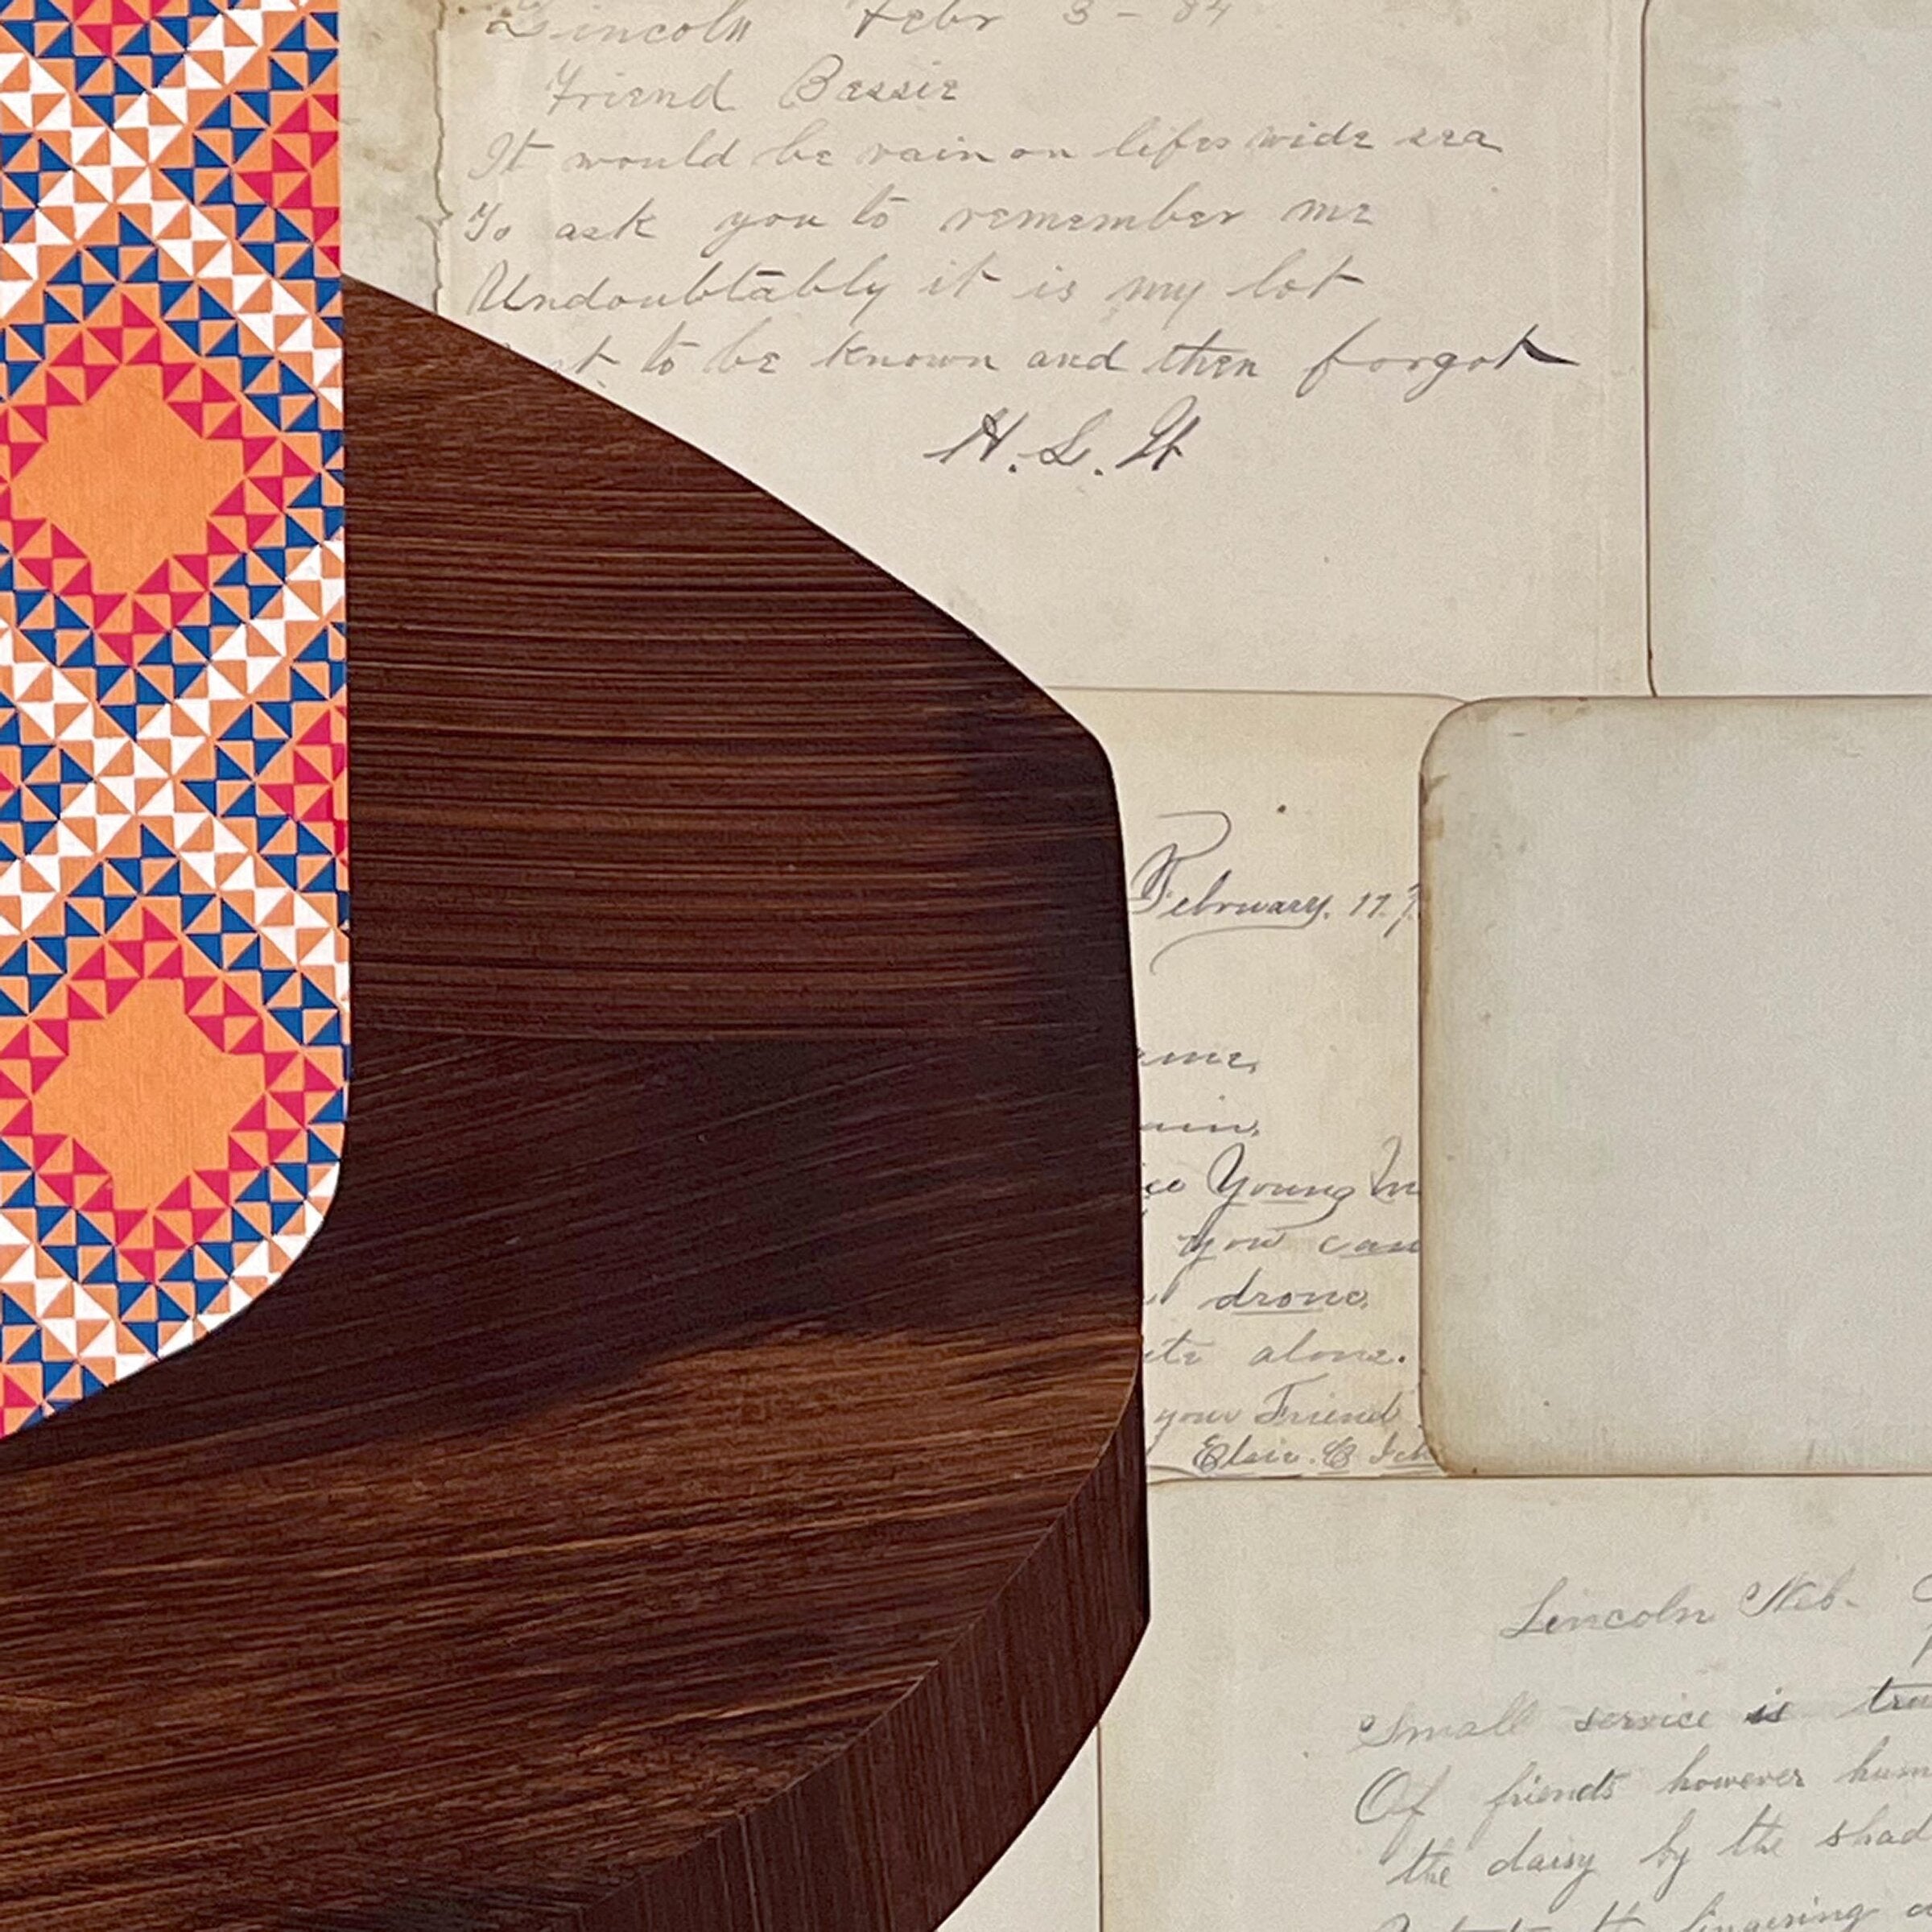 Lincoln Febr 3 - 84
Friend Bessie
It would be vain on lifes wide sea
To ask you to remember me
Undoubtably it is my lot
to be known and then forgot
H. L. H
February. 17.
Young
you can
drone.
alone.
your Friend
Lincoln Neb.
Small service is
Of friends however
the daisy by the
lingering